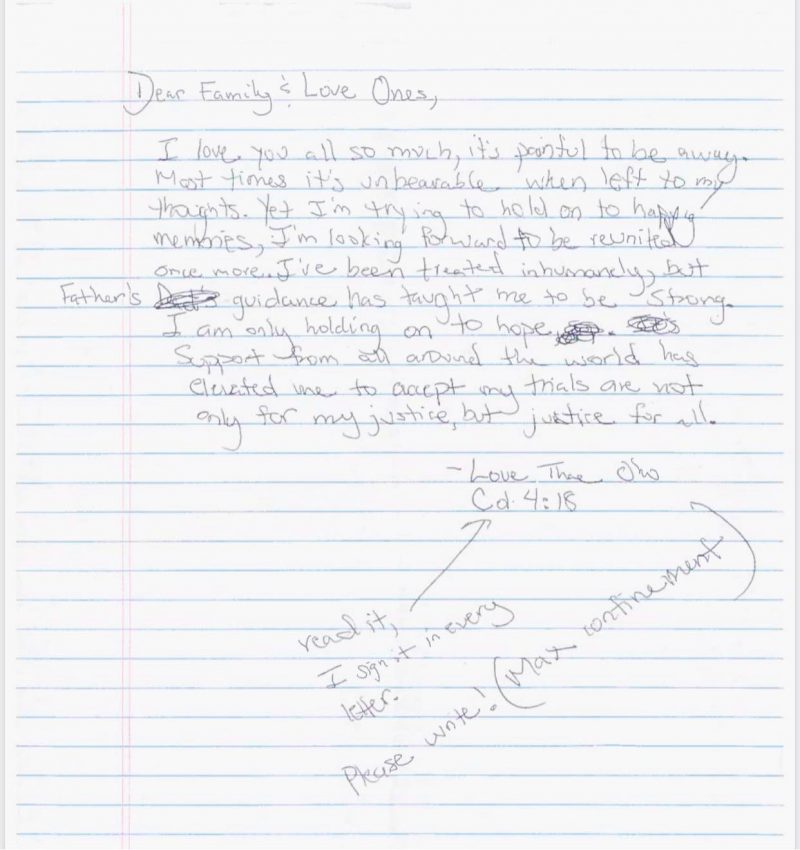 Dear Family & Love Ones,
I love you all so much, it's painful to be away.
Most times it's unbearable when left to my
thoights. Yet I'm trying to hold on to happy
memories, I'm looking forward to be reunited
once more. I've been treated inhumanely, but
Father's guidance has taught me to be strong.
I am only holding on to hope.
Support from all around the world has
elevated me to accept my trials are not
only for my justice, but justice for all.
- Love Thae Ohu
Col. 4:18
read it,
I sign it in every
letter.
Please write! (Max confinement)